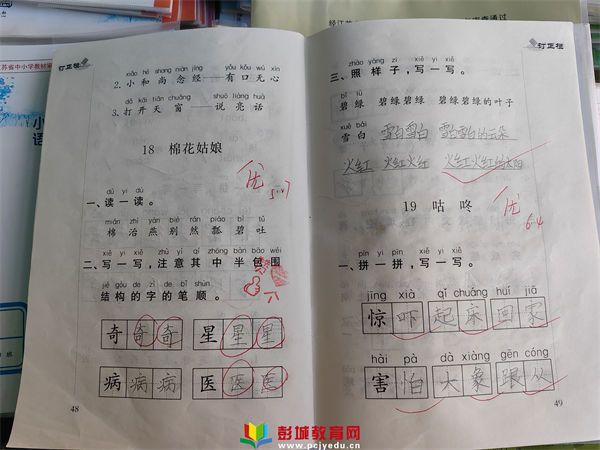 经江苏
审查通过
江苏省中小学教材
订正栏
xiǎo hé shang niàn jīng yǒu kǒu wú xīn
2. 小和尚念经——有口无心
dǎ kāi tiān chuāng shuō liàng huà
3. 打开天窗——说亮话
18 棉花姑娘
优
5.27
yī dú yi dú
一、读一读。
mián zhì yàn bié rán piáo bì tǔ
棉 治 燕 别 然 瓢 碧 吐
xiě yi xiě zhù yì qí zhōng bàn bāo wéi
二、写一写,注意其中半包围
jié gòu de zì de bǐ shùn
结构的字的笔顺。
奇 奇 奇 星 星 星
病 病 病 医 医 医
48
订正栏
zhào yàng zi xiě yi xiě
三、照样子,写一写。
bì lǜ
碧绿 碧绿碧绿 碧绿碧绿的叶子
xuě bái
雪白 雪白雪白 雪白雪白的云朵
火红 火红火红 火红火红的太阳
19 咕咚
优
6.4
pīn yi pīn xiě yi xiě
一、拼一拼,写一写。
jīng xià qǐ chuáng huí jiā
惊 吓 起 床 回 家
hài pà dà xiàng gēn cóng
害 怕 大 象 跟 从
49
彭城教育网
www.pcjyedu.cn